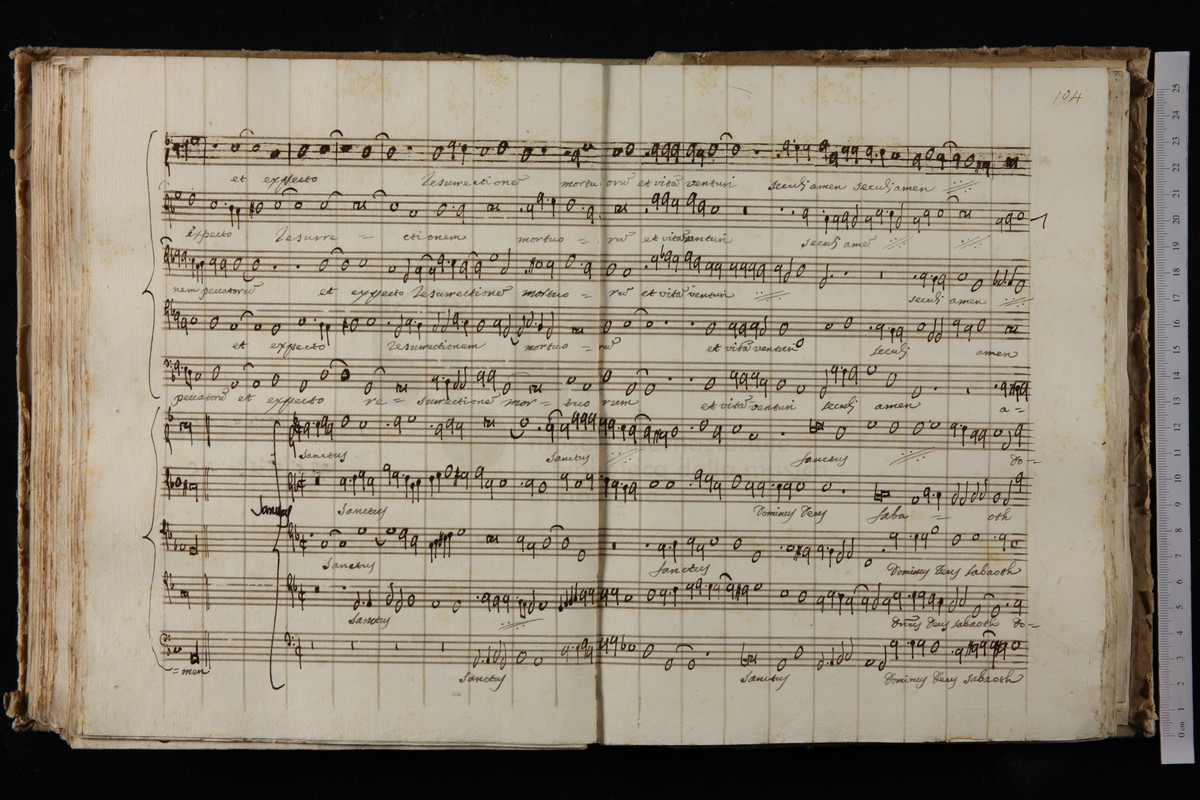 104
et expecto Resurrectionē mortuorū et vitā venturi seculj amen seculj amen
Expecto Resurre = ctionem mortuo = rū et vitā venturi seculj amē
nem peccatorū et expecto Resurrectionē mortuo = rū et vitā venturi seculj amen
et expecto Resurrectionem mortuo = rū et vitā venturi seculj amen
peccatorū et expecto re = surectionē mor = tuo rum et vitā venturi seculj amen a =
Sanctus Sanctus Sanctus Do =
Sanctus
Sanctus Dominus Deus Saba = oth
Sanctus Sanctus Dominus Deus Sabaoth
Sanctus Dñus Deus Sabaoth Do =
= men Sanctus Sanctus Dominus Deus Sabaoth
0 cm 1 2 3 4 5 6 7 8 9 10 11 12 13 14 15 16 17 18 19 20 21 22 23 24 25